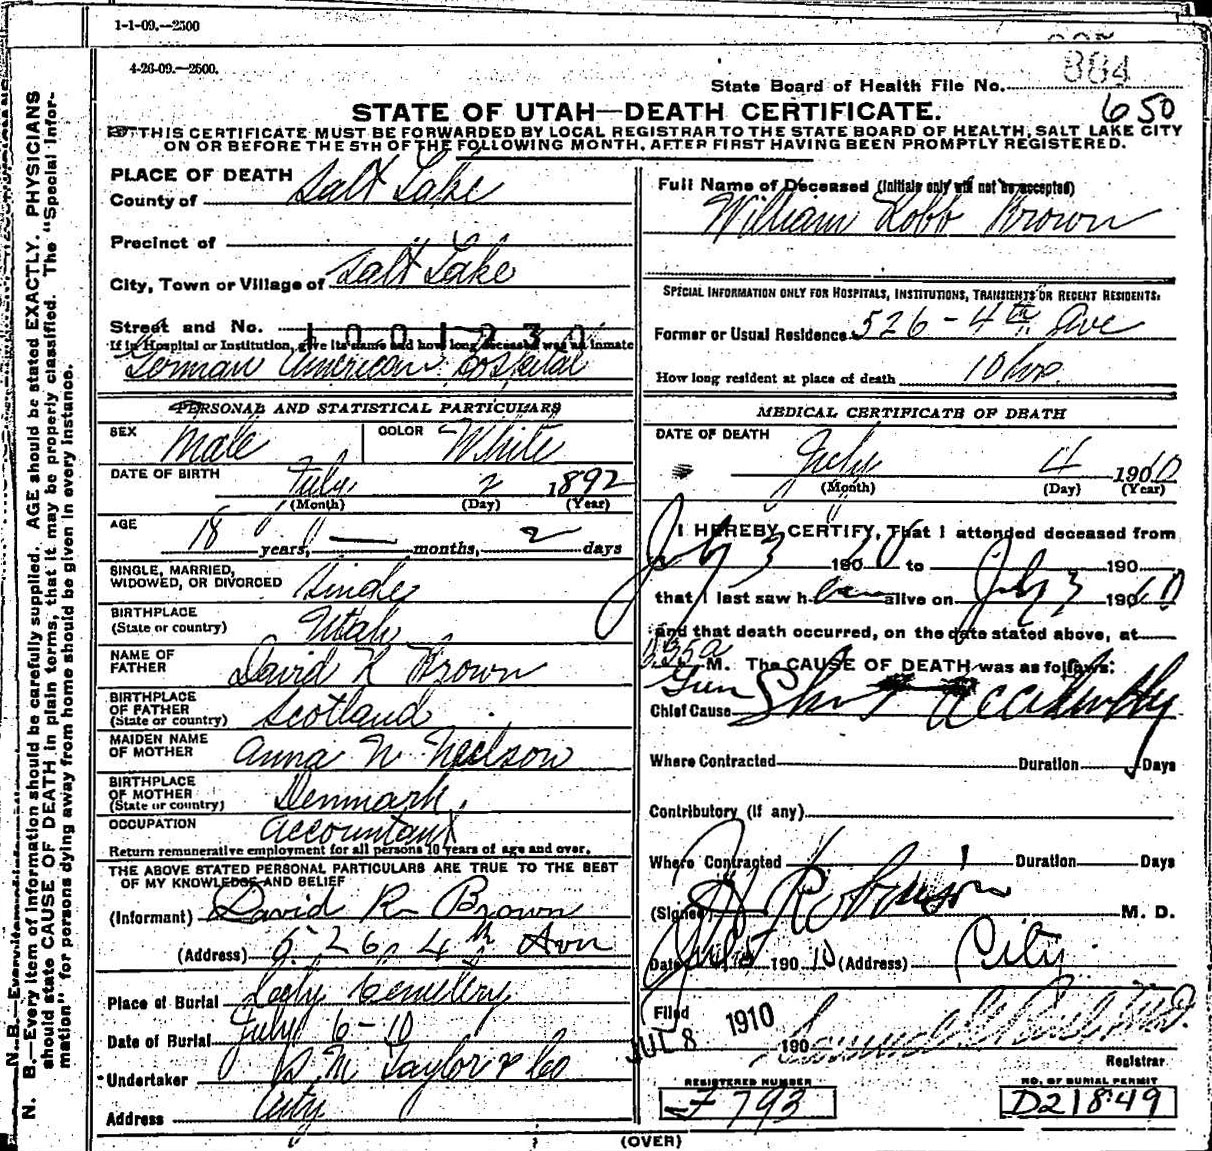 1-1-09.—2500
4-26-09.—2500.
State Board of Health File No. 884
650
STATE OF UTAH—DEATH CERTIFICATE.
THIS CERTIFICATE MUST BE FORWARDED BY LOCAL REGISTRAR TO THE STATE BOARD OF HEALTH, SALT LAKE CITY
ON OR BEFORE THE 5TH OF THE FOLLOWING MONTH, AFTER FIRST HAVING BEEN PROMPTLY REGISTERED.
PLACE OF DEATH
County of Salt Lake
Precinct of
City, Town or Village of Salt Lake
Street and No.
1001230
If in Hospital or Institution, give its name and how long deceased was an inmate
German American Hospital
PERSONAL AND STATISTICAL PARTICULARS
SEX Male COLOR White
DATE OF BIRTH July 2 1892
(Month) (Day) (Year)
AGE
18 years, — months, 2 days
SINGLE, MARRIED,
WIDOWED, OR DIVORCED Single
BIRTHPLACE
(State or country) Utah
NAME OF
FATHER David R Brown
BIRTHPLACE
OF FATHER
(State or country) Scotland
MAIDEN NAME
OF MOTHER Anna N Neilson
BIRTHPLACE
OF MOTHER
(State or country) Denmark.
OCCUPATION Accountant
Return remunerative employment for all persons 10 years of age and over.
THE ABOVE STATED PERSONAL PARTICULARS ARE TRUE TO THE BEST
OF MY KNOWLEDGE AND BELIEF
(Informant) David R Brown
(Address) 526, 4th Ave
Place of Burial City Cemetery
Date of Burial July 6-10
Undertaker S M Taylor & Co
Address City
Full Name of Deceased (Initials only will not be accepted)
William Robb Brown
SPECIAL INFORMATION ONLY FOR HOSPITALS, INSTITUTIONS, TRANSIENTS OR RECENT RESIDENTS:
Former or Usual Residence 526-4th Ave
How long resident at place of death 10 hrs.
MEDICAL CERTIFICATE OF DEATH
DATE OF DEATH
July 4 1910
(Month) (Day) (Year)
I HEREBY CERTIFY, That I attended deceased from
July 3 1910 to July 3 190
that I last saw him alive on July 3 1910
and that death occurred, on the date stated above, at
M. The CAUSE OF DEATH was as follows:
Chief Cause Gun Shot accidently
Where Contracted Duration Days
Contributory (if any)
Where Contracted Duration Days
(Signed) Robinson M. D.
Date 1910 (Address) City
Filed JUL 8 1910 190
Registrar
REGISTERED NUMBER
F 793
NO. OF BURIAL PERMIT
D21849
(OVER)
N. B.—Every item of information should be carefully supplied. AGE should be stated EXACTLY. PHYSICIANS
should state CAUSE OF DEATH in plain terms, that it may be properly classified. The "Special Infor-
mation" for persons dying away from home should be given in every instance.